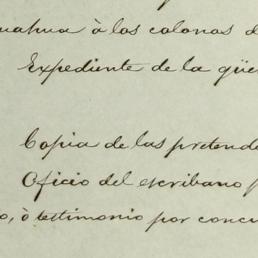 uahua à los colonos d
Expediente de la que
Copia de las pretend
Oficio del escribano p
o, ò testimonio por concu